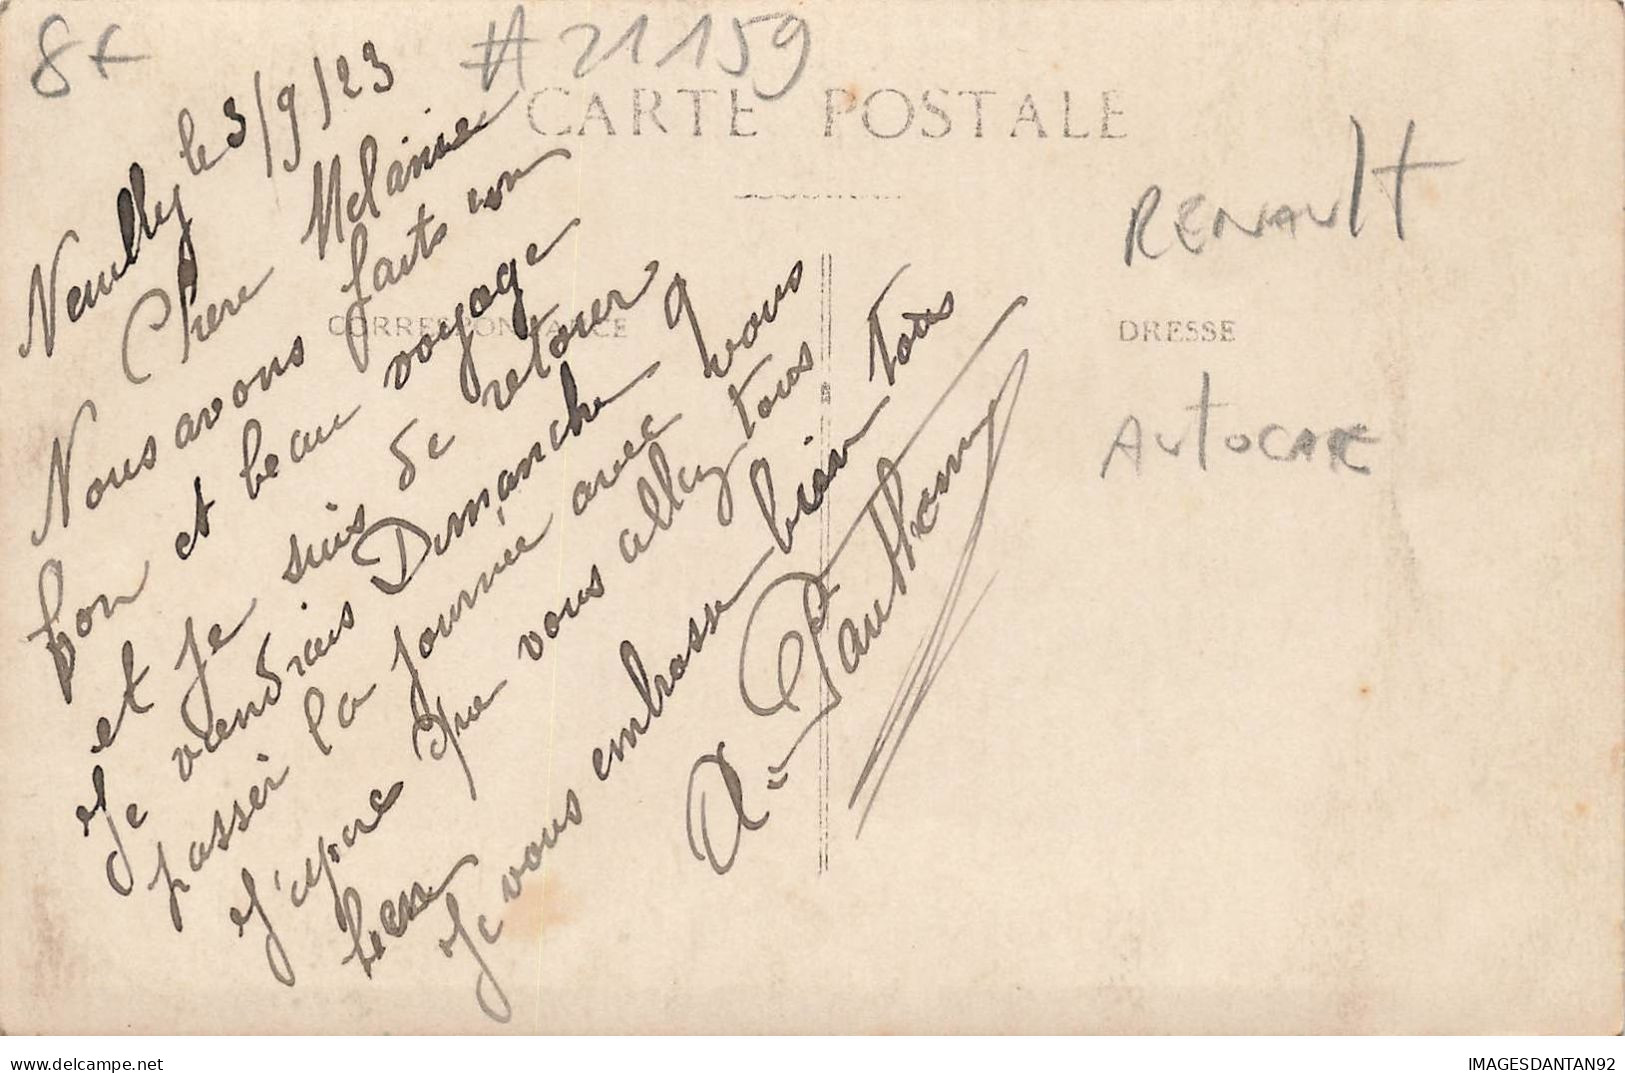 8€
# 21159
CARTE POSTALE
CORRESPONDANCE
DRESSE
RENAULT
AUTOCARE
Neuilly le 3/9/23
Chere Melanie
Nous avons faits un
bon et beau voyage
et je suis de retour
Je viendrais Dimanche 9
passer la journée avec vous
J'espere que vous allez tous
bien
Je vous embrasse bien tous
A. Pauthomy
www.delcampe.net
IMAGESDANTAN92